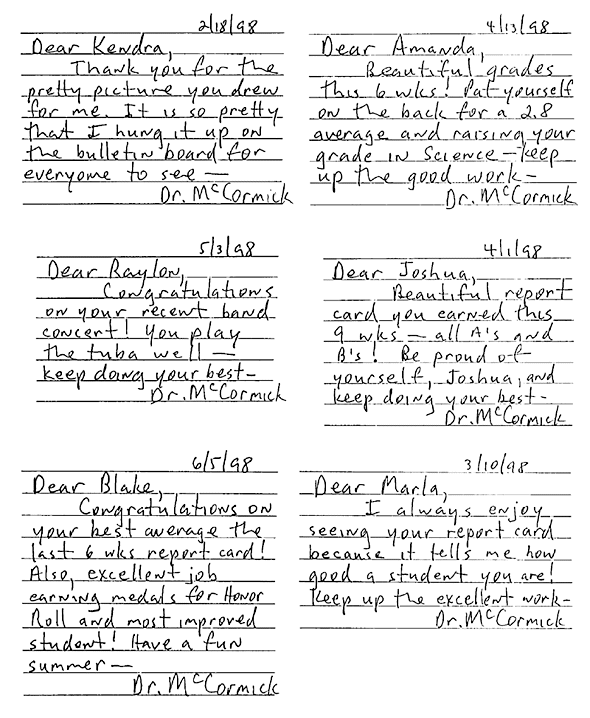 2/18/98
Dear Kendra,
Thank you for the
pretty picture you drew
for me. It is so pretty
that I hung it up on
the bulletin board for
everyone to see —
Dr. McCormick
4/13/98
Dear Amanda,
Beautiful grades
this 6 wks! Pat yourself
on the back for a 2.8
average and raising your
grade in Science — keep
up the good work -
Dr. McCormick
5/3/98
Dear Raylon,
Congratulations
on your recent band
concert! You play
the tuba well —
keep doing your best -
Dr. McCormick
4/1/98
Dear Joshua,
Beautiful report
card you earned this
9 wks — all A's and
B's! Be proud of
yourself, Joshua, and
keep doing your best -
Dr. McCormick
6/5/98
Dear Blake,
Congratulations on
your best average the
last 6 wks report card!
Also, excellent job
earning medals for Honor
Roll and most improved
student! Have a fun
summer —
Dr. McCormick
3/10/98
Dear Marla,
I always enjoy
seeing your report card
because it tells me how
good a student you are!
Keep up the excellent work -
Dr. McCormick